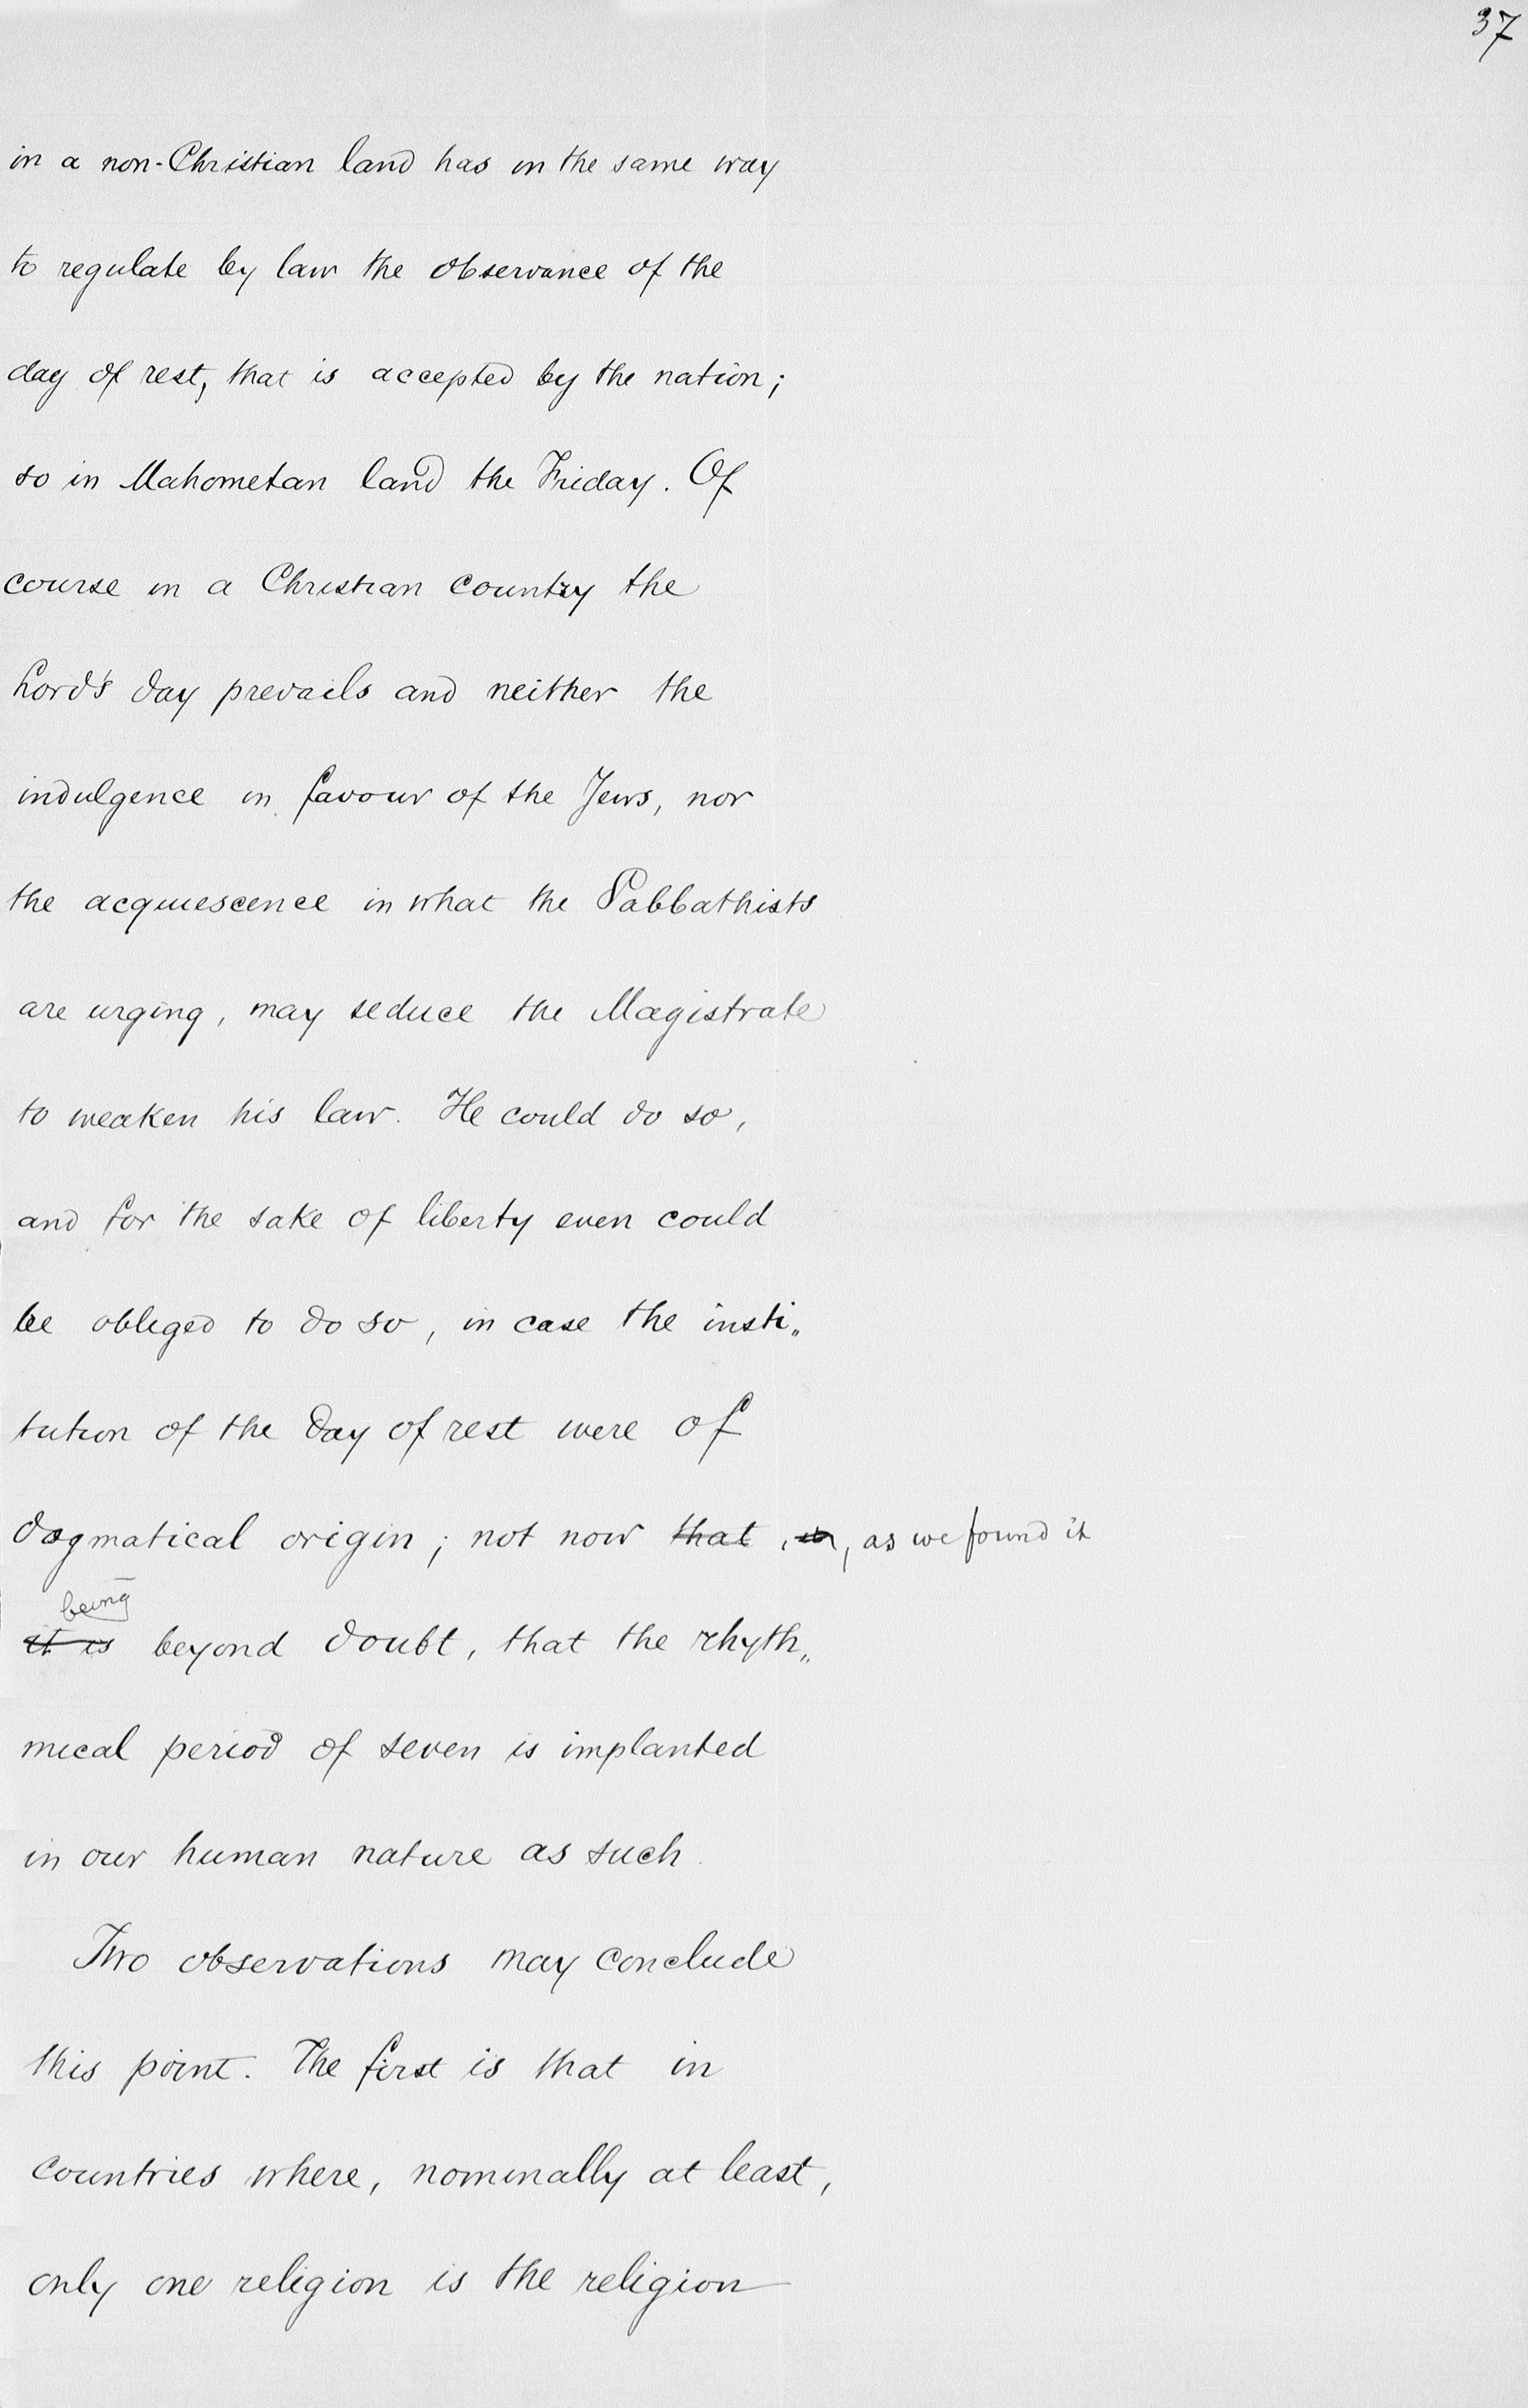 37
in a non-Christian land has in the same way
to regulate by law the observance of the
day of rest, that is accepted by the nation;
so in Mahometan land the Friday. Of
course in a Christian country the
Lord's day prevails and neither the
indulgence in favour of the Jews, nor
the acquiescence in what the Sabbathists
are urging, may seduce the Magistrate
to weaken his law. He could do so,
and for the sake of liberty even could
be obliged to do so, in case the insti„
tution of the day of rest were of
dogmatical origin; not now that , as we found it
being
it is beyond doubt, that the rhyth„
mical period of seven is implanted
in our human nature as such.
Two observations may conclude
this point. The first is that in
countries where, nominally at least,
only one religion is the religion